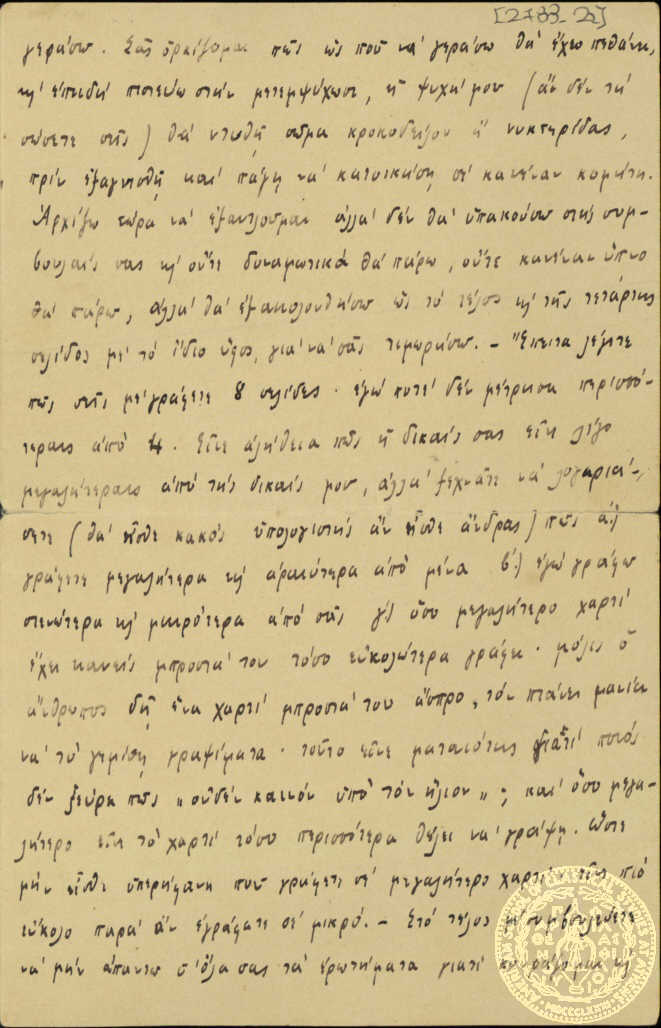 [2733-2α]
γεράσω. Σᾶς ὁρκίζομαι πῶς ὡς ποῦ νά γεράσω θά ἔχω πεθάνει,
κι' ἐπειδή πιστεύω στήν μετεμψύχωσι, ἡ ψυχή μου (ἄν δέν τή
σώσετε σεῖς) θά ντυθῇ σῶμα κροκοδείλου ἤ νυκτερίδας,
πρίν ἐξαγνισθῇ καί πάγῃ νά κατοικήσῃ σέ κανέναν κομήτη.
Ἀρχίζω τώρα νά ἐξαντλοῦμαι ἀλλά δέν θά ὑπακούσω στίς συμ-
βουλαίς σας κι' οὔτε δυναμωτικά θά πάρω, οὔτε κανέναν ὕπνο
θά πάρω, ἀλλά θά ἐξακολουθήσω ὡς τό τέλος κι' τῆς τετάρτης
σελίδος μέ τό ἴδιο ὕφος, γιά νά σᾶς τιμωρήσω. – Ἔπειτα λέγετε
πῶς σεῖς μέ γράφετε 8 σελίδες· ἐγώ ποτέ δέν μέτρησα περισσό-
τεραις ἀπό 4. Εἶνε ἀλήθεια πῶς ᾑ δικαίς σας εἶνε λίγο
μεγαλήτεραις ἀπό τής δικαίς μου, ἀλλά ξεχνᾶτε νά λογαριά-
σετε (θά εἶσθε κακός ὑπολογιστής ἄν εἶσθε ἄνδρας) πῶς α'.)
γράφετε μεγαλήτερα κι' ἀραιότερα ἀπό μένα β'.) ἐγώ γράφω
στενώτερα κι' μικρότερα ἀπό σᾶς γ') ὅσο μεγαλήτερο χαρτί
ἔχει κανείς μπροστά του τόσο εὐκολώτερα γράφει· μόλις ὁ
ἄνθρωπος δῇ ἕνα χαρτί μπροστά του ἄσπρο, τόν πιάνει μανία
νά τό γεμίσῃ γραψίματα· τοῦτο εἶνε ματαιότης γιατί ποιός
δέν ξεύρει πῶς „οὐδέν καινόν ὑπό τόν ἥλιον„; καί ὅσο μεγα-
λήτερο εἶνε τό χαρτί τόσο περισσότερα θέλει νά γράψῃ. Ὥστε
μήν εἶσθε ὑπερήφανη ποῦ γράφετε σέ μεγαλήτερο χαρτί· εἶνε πιό
εὔκολο παρά ἄν ἐγράφατε σέ μικρό. – Στό τέλος μέ συμβουλεύετε
νά μήν ἀπαντῶ σ' ὅλα σας τά ἐρωτήματα γιατί κουράζομαι κι'